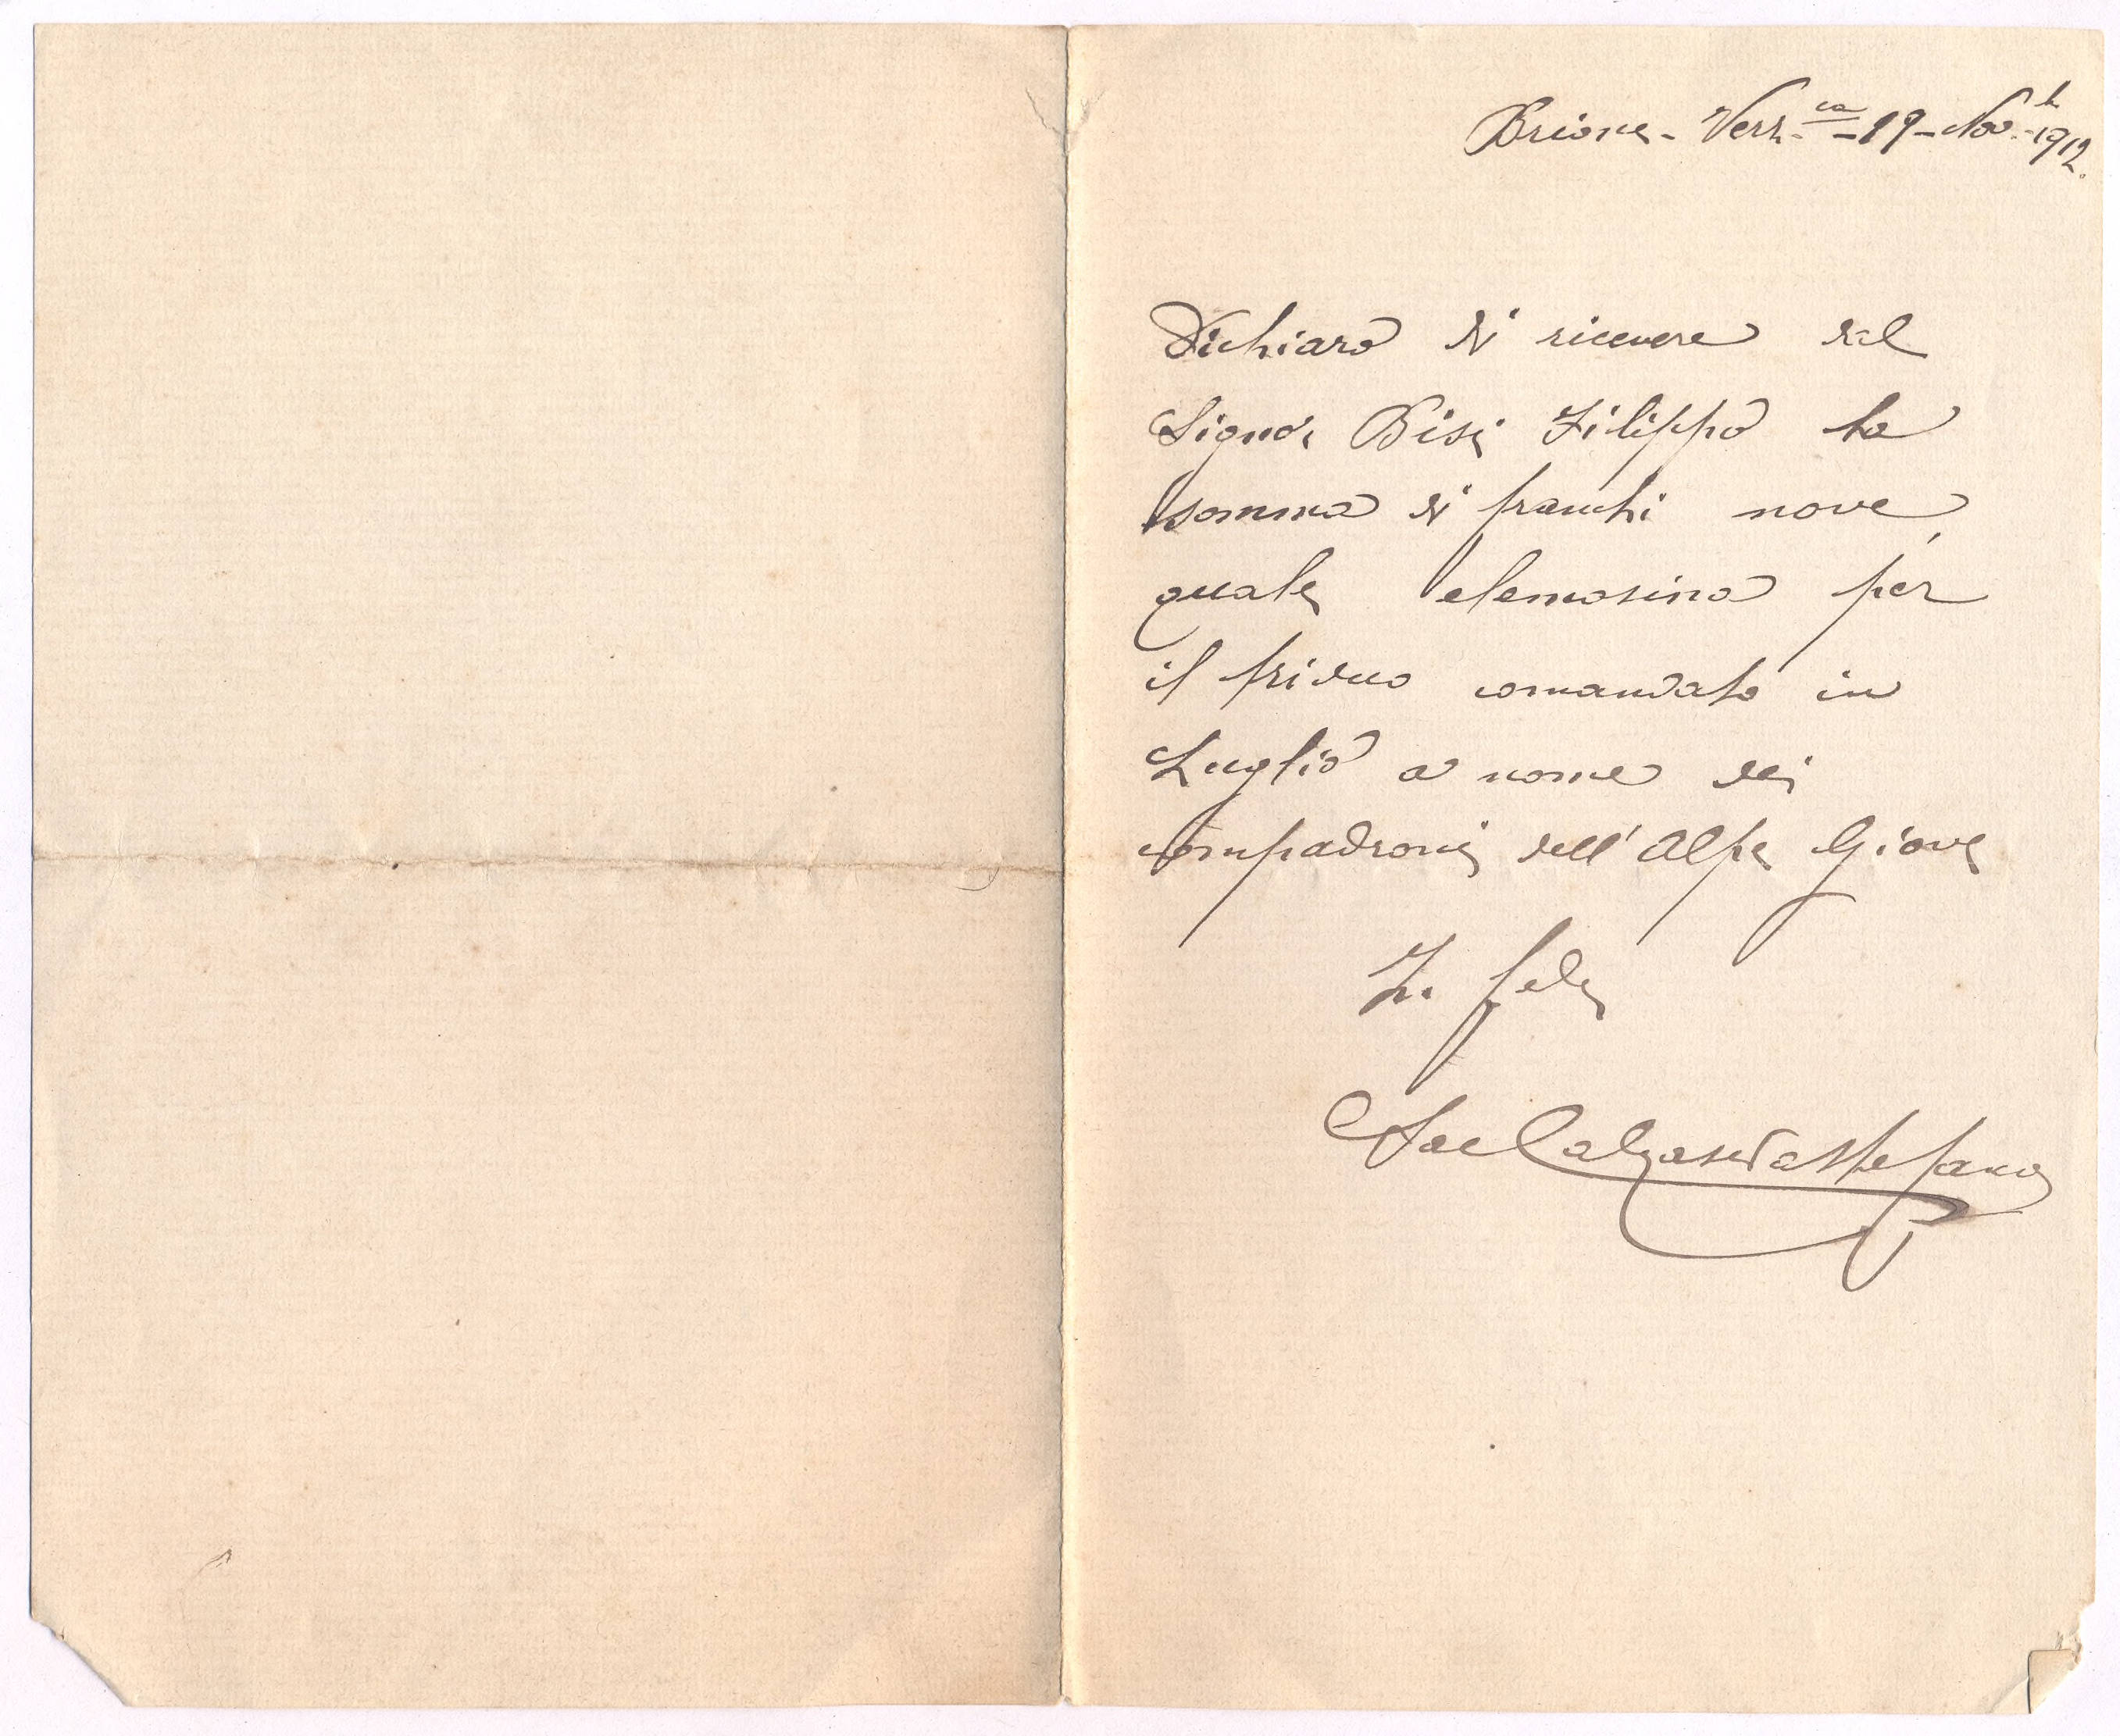 Brione - Verz.ca - 19 - Nov.b 1912.
Dichiaro di ricevere dal
Signor Bisi Filippo la
somma di franchi nove,
quale elemosina per
il triduo comandato in
Luglio a nome dei
compadroni dell'Alpe Giove
In fede
Sac